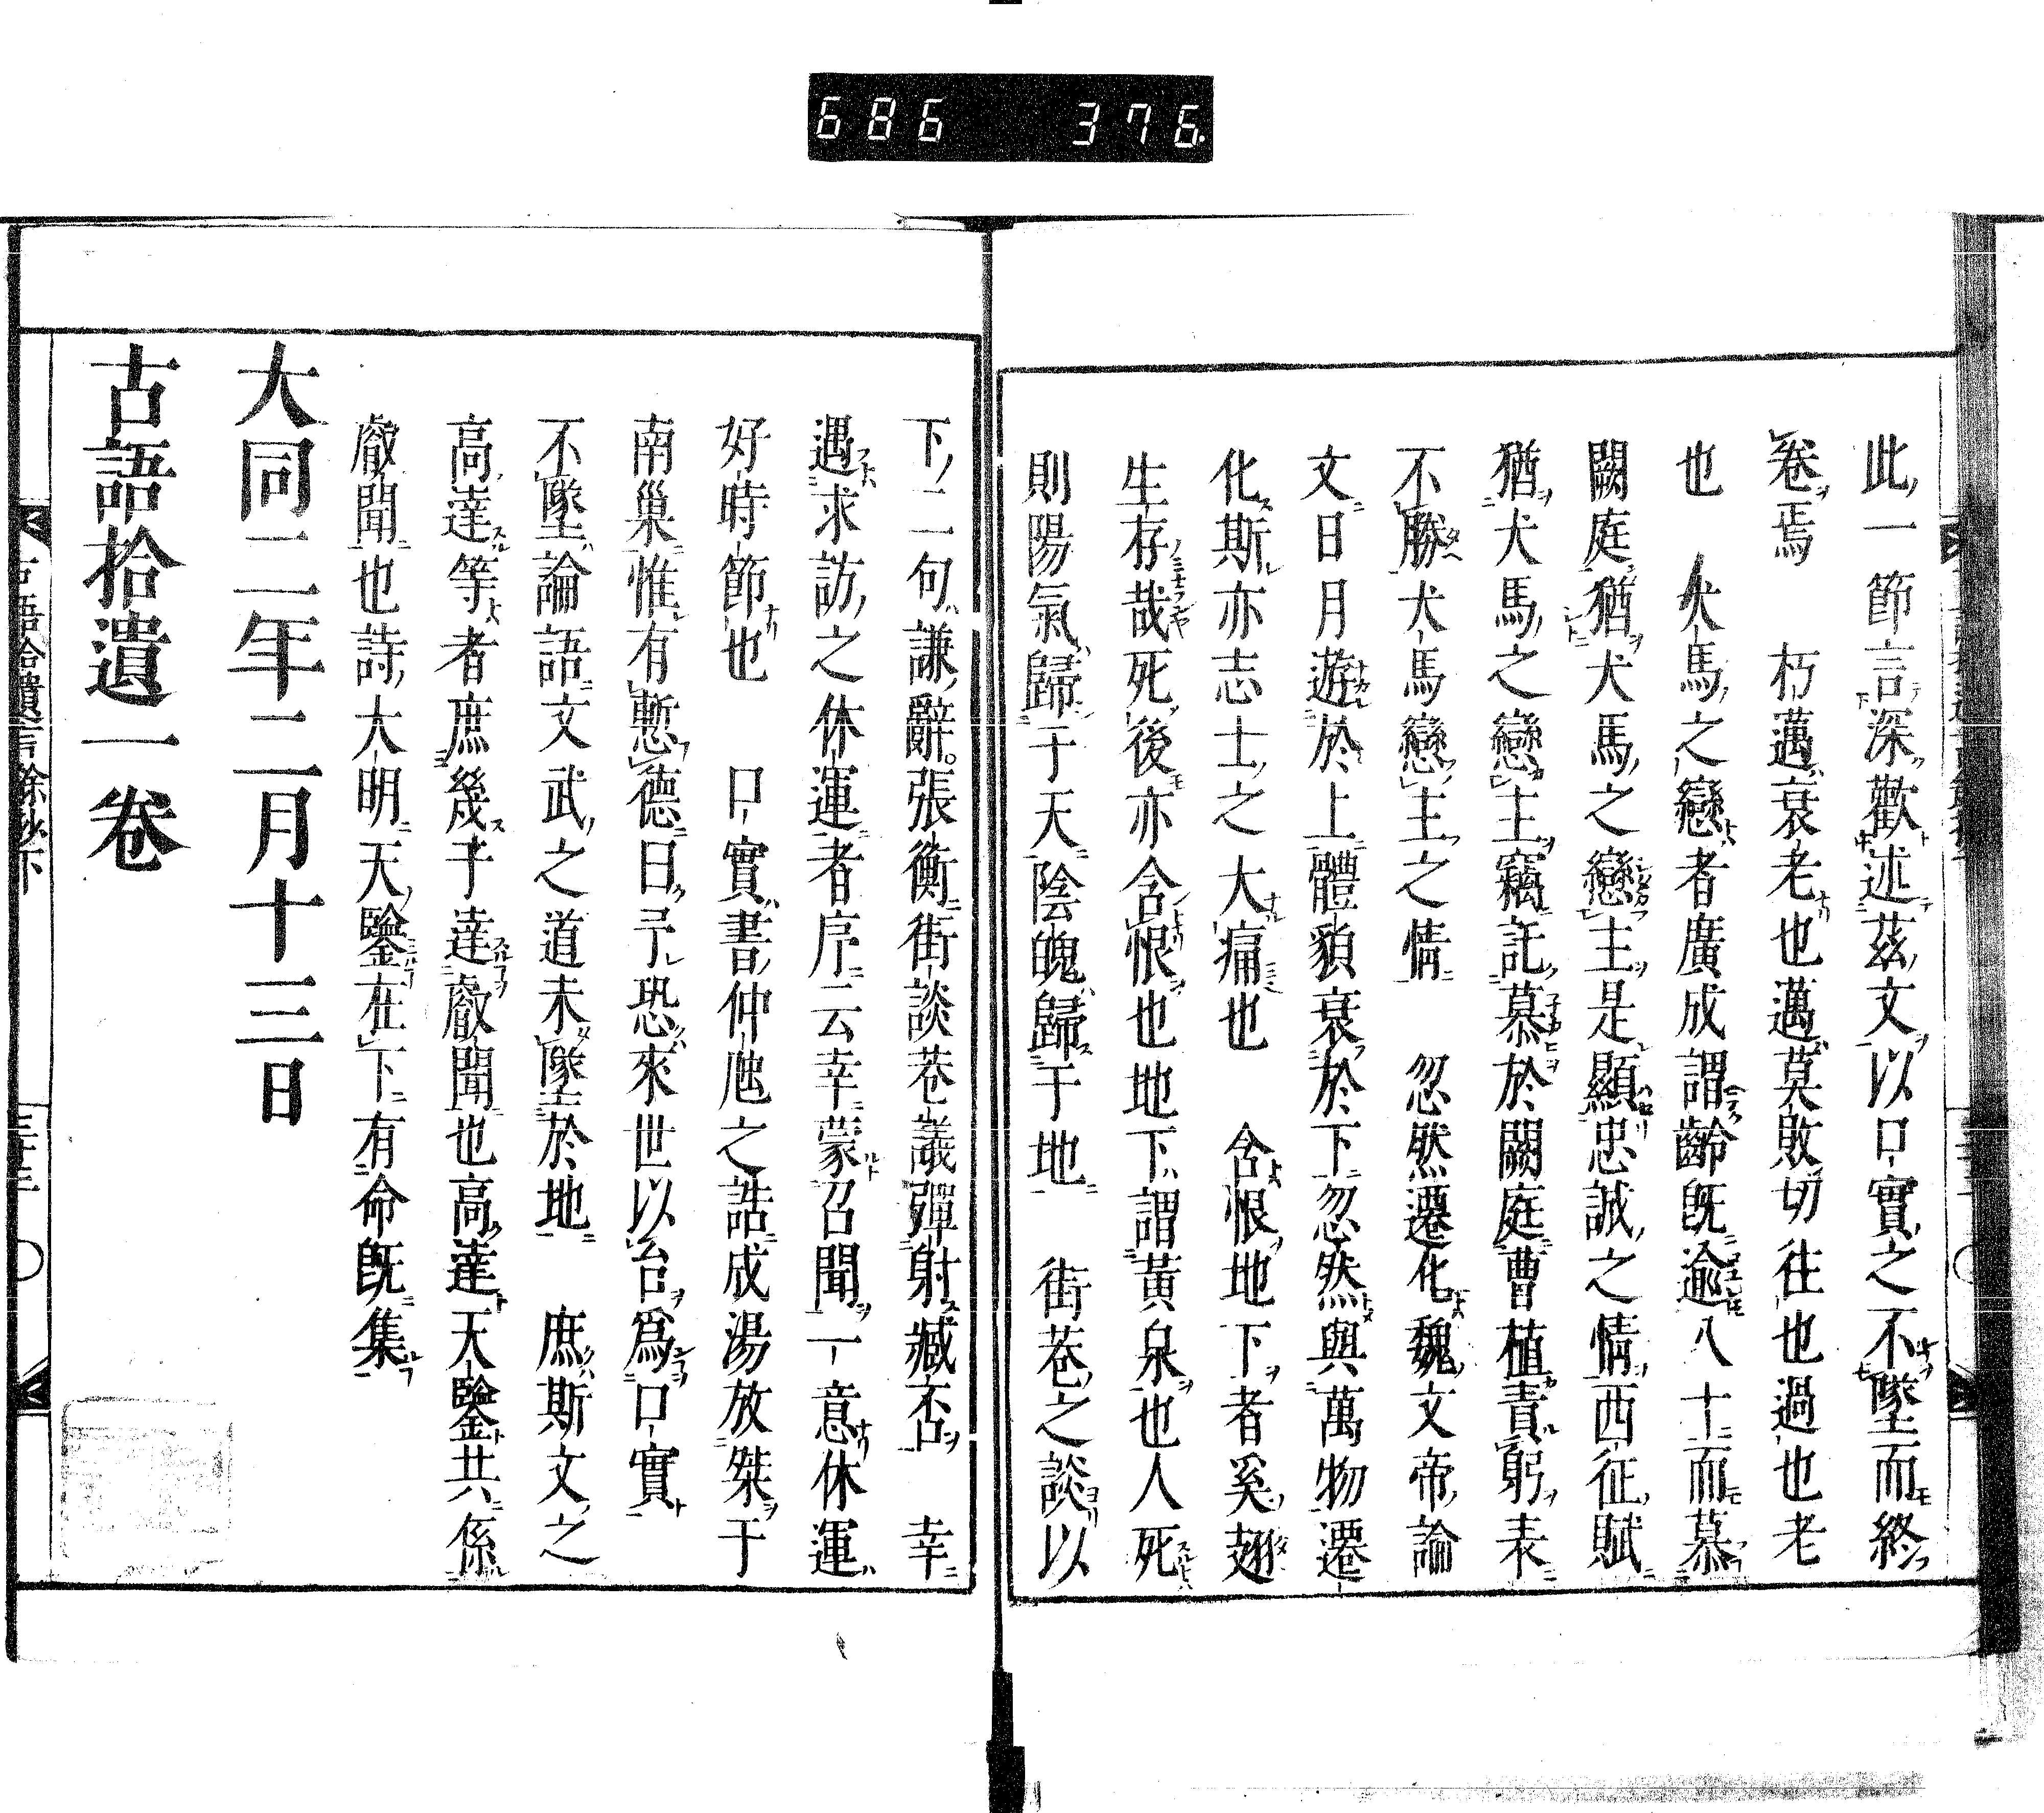 686 376
此一節言深歡述茲文以口實之不墜而終
卷焉 朽邁衰老也邁莫敗切往也過也老
也 犬馬之戀者廣成謂齡旣逾八十而慕
闕庭猶犬馬之戀主是顯忠誠之情西征賦
猶犬馬之戀主竊託慕於闕庭曹植責躬表
不勝犬馬戀主之情 忽然遷化魏文帝論
文日月遊於上體貌衰於下忽然與萬物遷
化斯亦志士之大痛也 含恨地下者奚趐
生存哉死後亦含恨也地下謂黃泉也人死
則陽氣歸于天陰魄歸于地 街巷之談以
下二句謙辭張衡街談巷議彈射臧否 幸
遇求訪之休運者序云幸蒙召聞一意休運
好時節也 口實書仲虺之誥成湯放桀于
南巢惟有慙德曰予恐來世以台爲口實
不墜論語文武之道未墜於地 庶斯文之
高達等者庶幾于達叡聞也高達天鑒共係
叡聞也詩大明天鑒在下有命旣集
大同二年二月十三日
古語拾遺一卷
古語拾遺言餘抄下